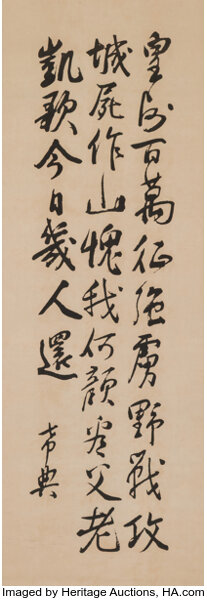 皇師百萬征強虜野戰攻
城屍作山愧我何顔看父老
凱歌今日幾人還
希典
Imaged by Heritage Auctions, HA.com